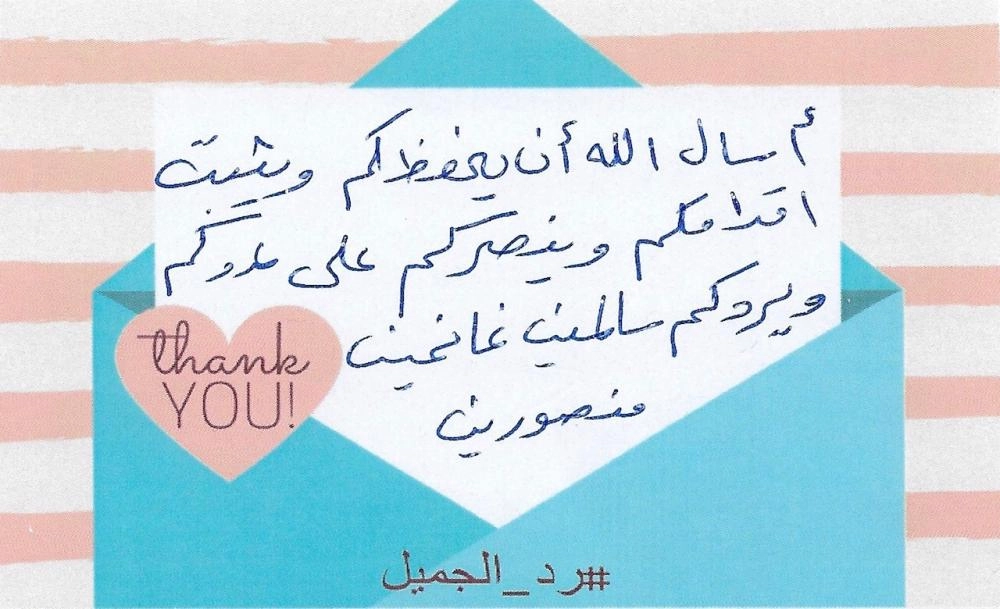 أسال الله أن يحفظكم ويثبت
اقدامكم وينصركم على عدوكم
ويردكم سالمين غانمين
منصورين
thank
YOU!
#رد_الجميل